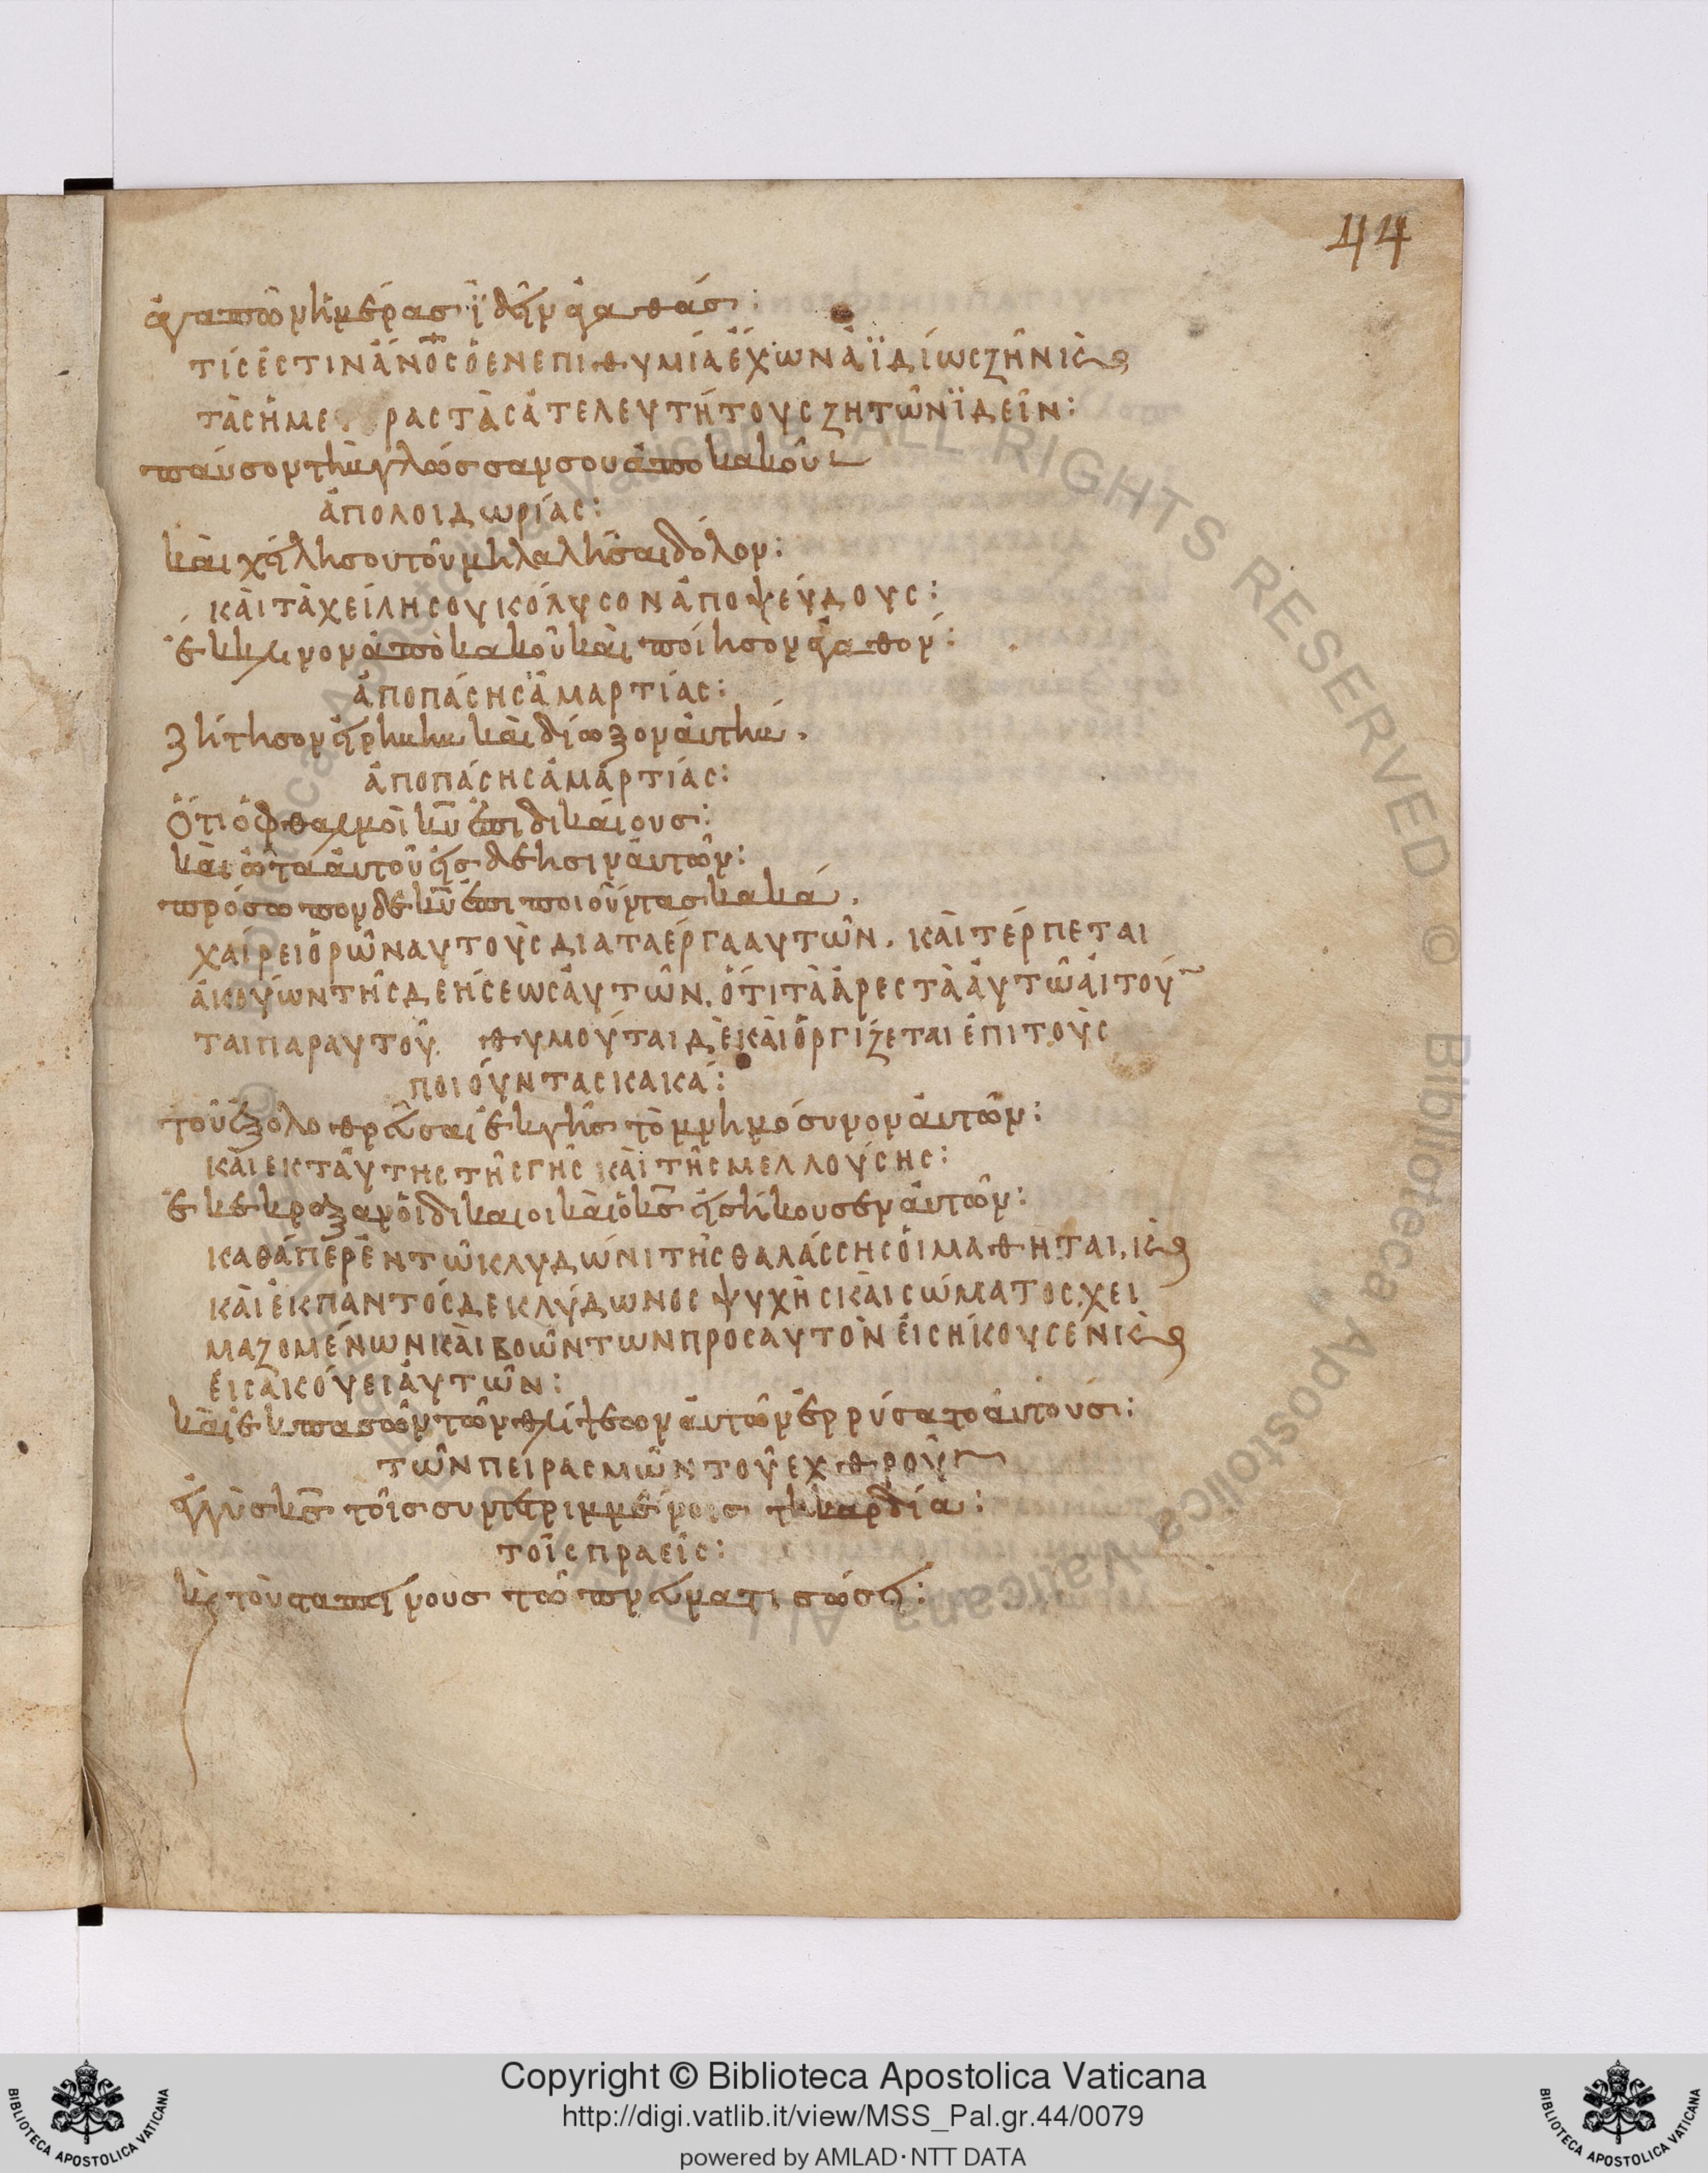 44
ἀγαπῶν ἡμέρας ϊδεῖν ἀγαθάς :
τίς ἐστιν ἄν̅ο̅ς ὁ ἐν ἐπιθυμία ἔχων ἀϊδίως ζῆν κ̀
τὰς ἡμέρας τὰς ἀτελευτήτους ζητῶν ϊδεῖν :
παύσον τὴν γλώσσαν σου ἀπο κακοῦ
ἀπο λοιδωρίας :
καὶ χείλη σου τοῦ μὴ λαλῆσαι δόλον :
καὶ τὰ χείλη σου κόλυσον ἀπο ψεύδους :
ἔκκλινον ἀπὸ κακοῦ καὶ ποίησον ἀγαθον :
ἀπο πάσης ἁμαρτίας :
ζήτησον εἰρήνην καὶ δίωξον ἀυτήν .
ἀπο πάσης ἁμαρτίας :
ὅτι ὀφθαλμοὶ κ̅υ̅ ἐπι δικαίους :
καὶ ὦτα ἀυτοῦ εἰς δέησιν ἀυτῶν :
πρόσωπον δὲ κ̅υ̅ ἐπι ποιοῦντας κακά .
χαίρει ὁρῶν αυτοὺς δια τα έργα αυτῶν . καὶ τέρπεται
ἀκούων τῆς δεήσεως ἀυτῶν . ὅτι τὰ ἀρεστὰ ἀυτῶ ἀιτοῦ
ται παρ αυτοῦ. θυμούται δὲ καὶ ὀργίζεται ἐπι τοὺς
ποιούντας κακά :
τοῦ ἐξολοθρεῦσαι ἐκ γῆς τὸ μνημόσυνον ἀυτῶν :
καὶ εκ ταύτης τῆς γῆς καὶ τῆς μελλούσης :
ἐκέκραξαν ὁι δικαιοι καὶ ὁ κ̅ς̅ εἰσήκουσεν ἀυτῶν :
καθάπερ ἐν τῶ κλυδώνι τῆς θαλάσσης ὁι μαθηται, κ̀
καὶ ἐκ παντός δε κλύδωνος ψυχῆς καὶ σώματος χει
μαζομένων καὶ βοώντων προς αυτον ἐισήκουσεν κ̀
ἐισακούει ἀυτῶν :
καὶ ἐκ πασῶν τῶν θλίψεων ἀυτῶν ἐρρύσατο ἀυτούς :
τῶν πειρασμῶν τοῦ εχθροῦ
ἐγγὺς κ̅ς̅ τοῖς συντετριμμένοις τὴν καρδία :
τοῖς πραεῖς :
κ̀ τοὺς ταπεινους τῶ πνεύματι σώσει :
Copyright © Biblioteca Apostolica Vaticana
http://digi.vatlib.it/view/MSS_Pal.gr.44/0079
powered by AMLAD·NTT DATA